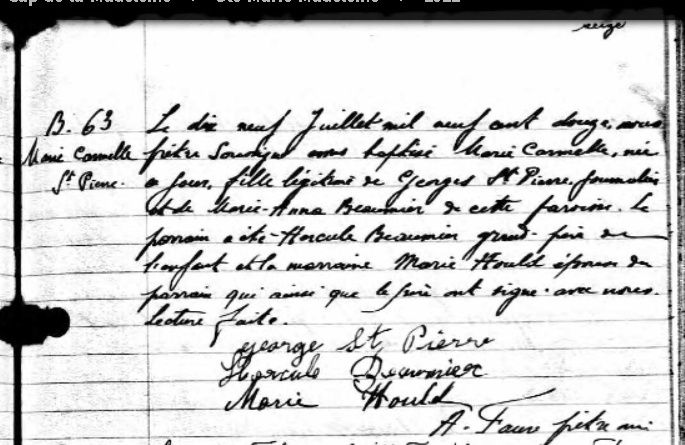 Cap-de-la-Madeleine Ste-Marie-Madeleine 1912
seize
B. 63
Marie Carmelle
St Pierre.
Le dix neuf Juillet mil neuf cent douze, nous
prêtre soussigné avons baptisé Marie Carmelle, née
ce jour, fille légitime de Georges St Pierre, journalier
et de Marie-Anna Beaumier de cette paroisse. Le
parrain a été Hercule Beaumier grand-père de
l'enfant et la marraine Marie Hould épouse du
parrain qui ainsi que le père ont signé avec nous.
Lecture faite.
George St Pierre
Hercule Beaumier
Marie Hould
A. Faure ptre